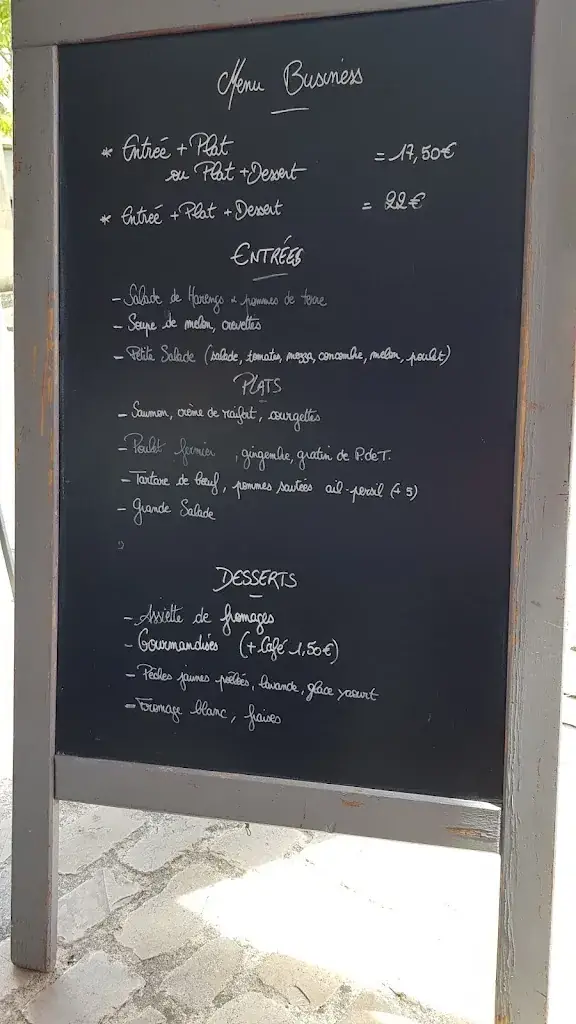 Menu Business
* Entrée + Plat = 17,50€
ou Plat + Dessert
* Entrée + Plat + Dessert = 22€
ENTRÉES
- Salade de Harengs & pommes de terre
- Soupe de melon, crevettes
- Petite Salade (salade, tomates, mozza, concombre, melon, poulet)
PLATS
- Saumon, crème de raifort, courgettes
- Poulet fermier , gingembre, gratin de P.deT.
- Tartare de bœuf, pommes sautées ail-persil (+5)
- Grande Salade
DESSERTS
- Assiette de fromages
- Gourmandises (+ Café 1,50€)
- Pêches jaunes pochées, lavande, glace yaourt
- Fromage blanc, fraises